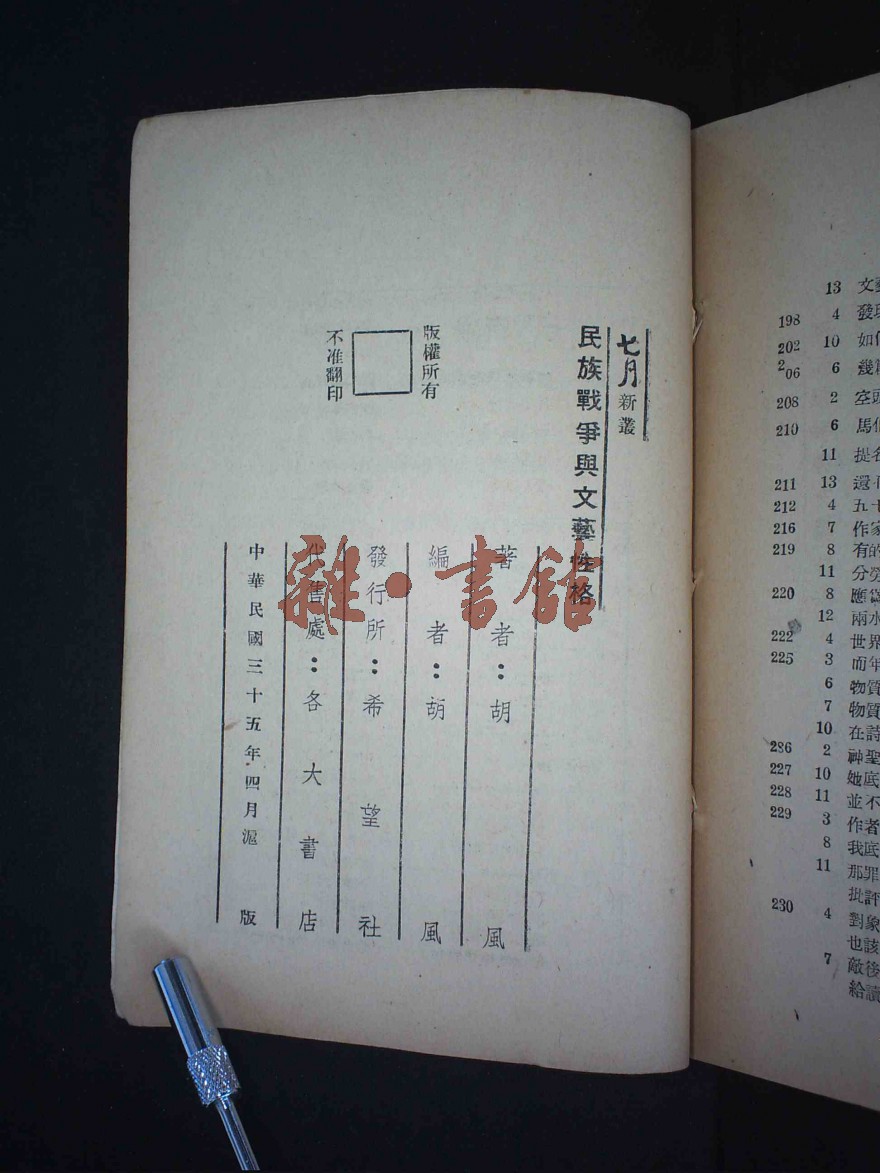 七月新叢
民族戰爭與文藝性格
版權所有
不准翻印
著者：胡風
編者：胡風
發行所：希望社
代售處：各大書店
中華民國三十五年四月滬版
雜·書館
13 文藝
198 4 發現
202 10 如何
206 6 幾
208 2 空頭
210 6 馬
11 提名
211 13 還
212 4 五
216 7 作家
219 8 有的
11 分勞
220 8 應當
12 兩水
222 4 世界
225 3 而年
6 物質
7 物質
10 在詩
286 2 神聖
227 10 她底
228 11 並不
229 3 作者
8 我底
11 那罪
批評
230 4 對象
也該
7 敵後
給讀